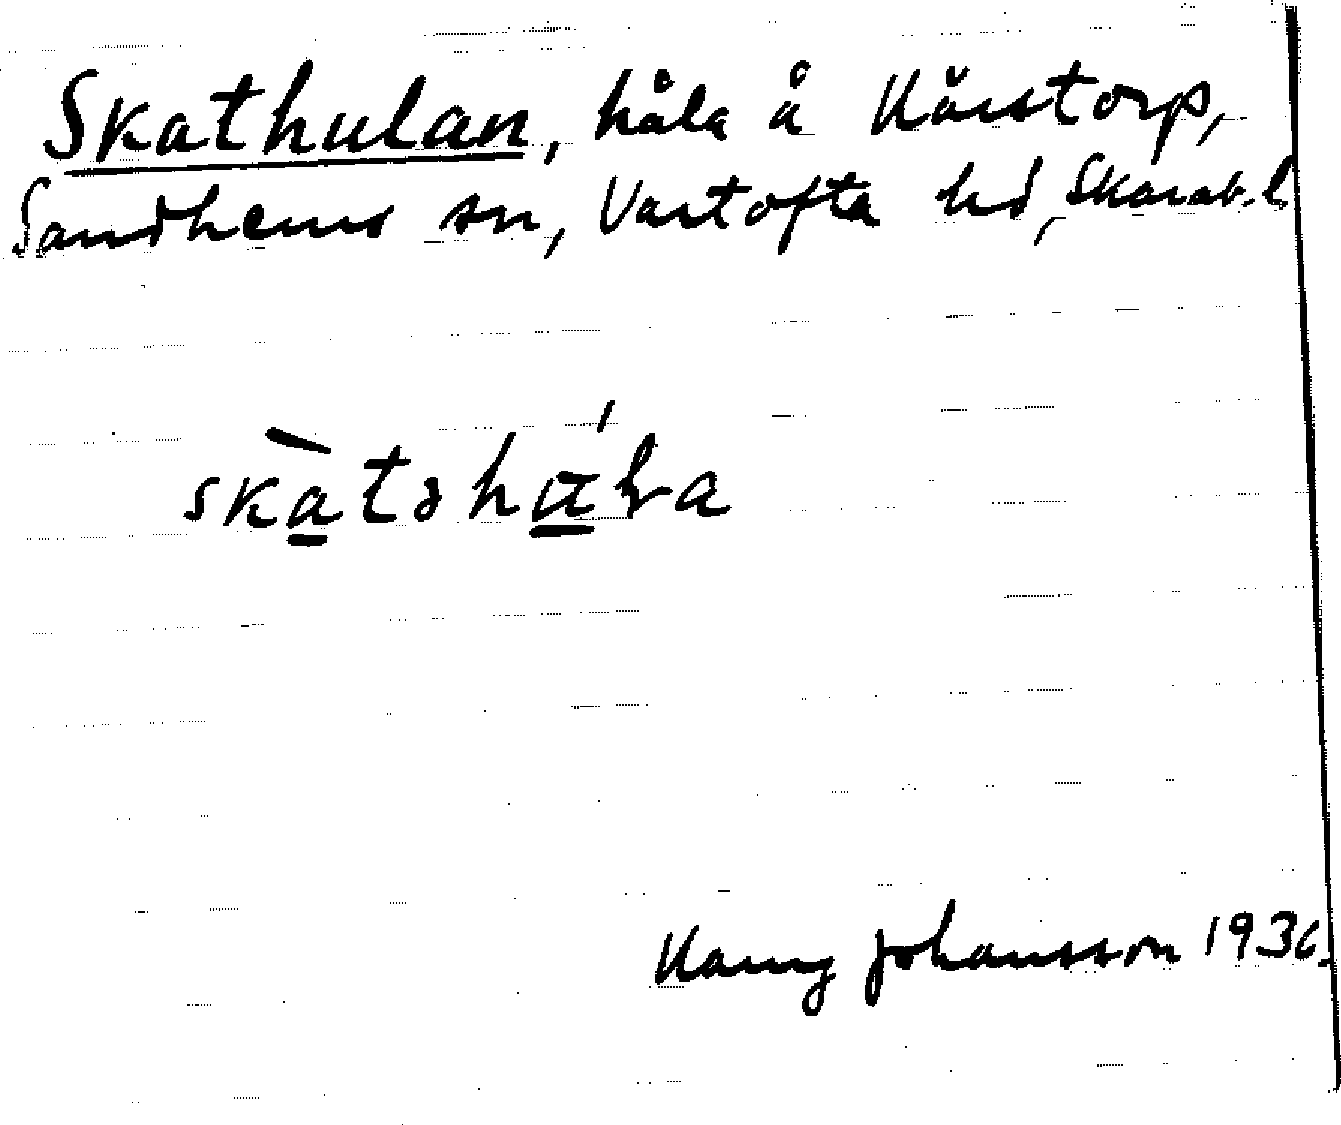 Skathulan, håla å Kårstorp,
Sandhems sn, Vartofta hd, Skarab. l
skàtəhάƚa
Johansson 1936.